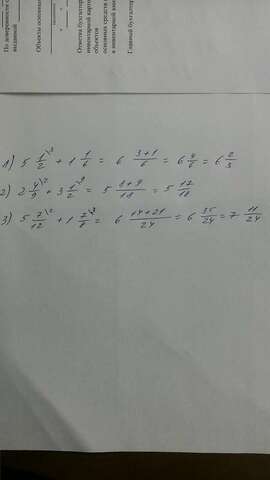 По доверенности
выданной
Объекты основных
Отметка бухгалтер
инвентарной карто
объектов
основных средств
в инвентарной
Главный бухгалтер
1) 5 1/2 \3 + 1 1/6 = 6 3+1/6 = 6 4/6 = 6 2/3
2) 2 4/9 \2 + 3 1/2 \9 = 5 8+9/18 = 5 17/18
3) 5 7/12 \2 + 1 7/8 \3 = 6 14+21/24 = 6 35/24 = 7 11/24